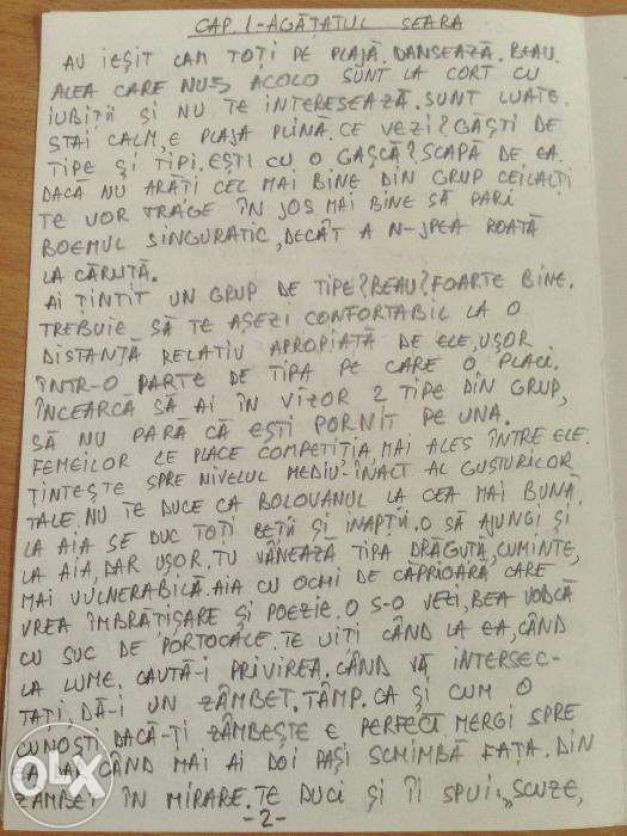 CAP. 1 - AGĂȚATUL SEARA
AU IEȘIT CAM TOȚI PE PLAJĂ. DANSEAZĂ. BEAU.
ALEA CARE NU-S ACOLO SUNT LA CORT CU
IUBIȚII ȘI NU TE INTERESEAZĂ. SUNT LUATE.
STAI CALM, E PLAJA PLINĂ. CE VEZI? GĂȘTI DE
TIPE ȘI TIPI. EȘTI CU O GAȘCĂ? SCAPĂ DE EA.
DACĂ NU ARĂȚI CEL MAI BINE DIN GRUP CEILALȚI
TE VOR TRAGE ÎN JOS MAI BINE SĂ PARI
BOEMUL SINGURATIC, DECÂT A N-ȘPEA ROATĂ
LA CĂRUȚĂ.
AI ȚINTIT UN GRUP DE TIPE? BEAU? FOARTE BINE.
TREBUIE SĂ TE AȘEZI CONFORTABIL LA O
DISTANȚĂ RELATIV APROPIATĂ DE ELE, UȘOR
ÎNTR-O PARTE DE TIPA PE CARE O PLACI.
ÎNCEARCĂ SĂ AI ÎN VIZOR 2 TIPE DIN GRUP,
SĂ NU PARĂ CĂ EȘTI PORNIT PE UNA.
FEMEILOR LE PLACE COMPETIȚIA, MAI ALES ÎNTRE ELE.
ȚINTEȘTE SPRE NIVELUL MEDIU-ÎNALT AL GUSTURILOR
TALE. NU TE DUCE CA BOLOVANUL LA CEA MAI BUNĂ.
LA AIA SE DUC TOȚI BEȚII ȘI INAPȚII. O SĂ AJUNGI ȘI
LA AIA, DAR UȘOR. TU VÂNEAZĂ TIPA DRĂGUȚĂ, CUMINTE,
MAI VULNERABILĂ. AIA CU OCHI DE CĂPRIOARĂ CARE
VREA ÎMBRĂȚIȘARE ȘI POEZIE. O S-O VEZI, BEA VODCĂ
CU SUC DE PORTOCALE. TE UIȚI CÂND LA EA, CÂND
LA LUME. CAUTĂ-I PRIVIREA. CÂND VĂ INTERSEC-
TAȚI, DĂ-I UN ZÂMBET. TÂMP. CA ȘI CUM O
CUNOȘTI DACĂ-ȚI ZÂMBEȘTE E PERFECT. MERGI SPRE
EA DAR CÂND MAI AI DOI PAȘI SCHIMBĂ FAȚA. DIN
ZÂMBET ÎN MIRARE. TE DUCI ȘI ÎI SPUI: „SCUZE,
-2-
OLX